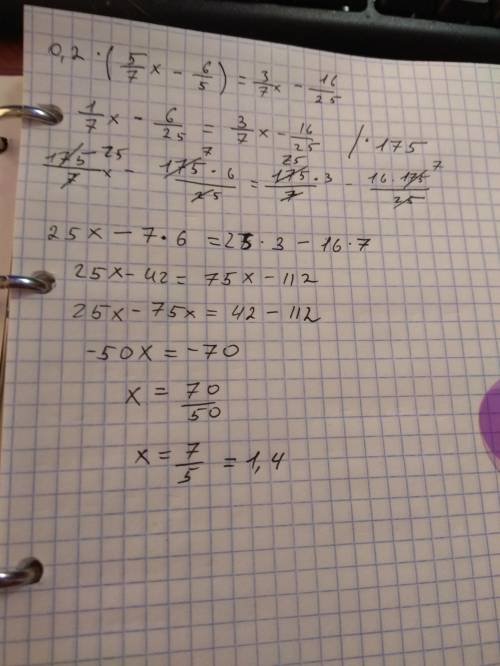 0,2 · (5/7 x − 6/5) = 3/7 x − 16/25
1/7 x − 6/25 = 3/7 x − 16/25 / · 175
175/7 25 x − 175 · 6/25 7 = 175 · 3/7 25 − 16 · 175/25 7
25x − 7 · 6 = 25 · 3 − 16 · 7
25x − 42 = 75x − 112
25x − 75x = 42 − 112
−50x = −70
x = 70/50
x = 7/5 = 1,4